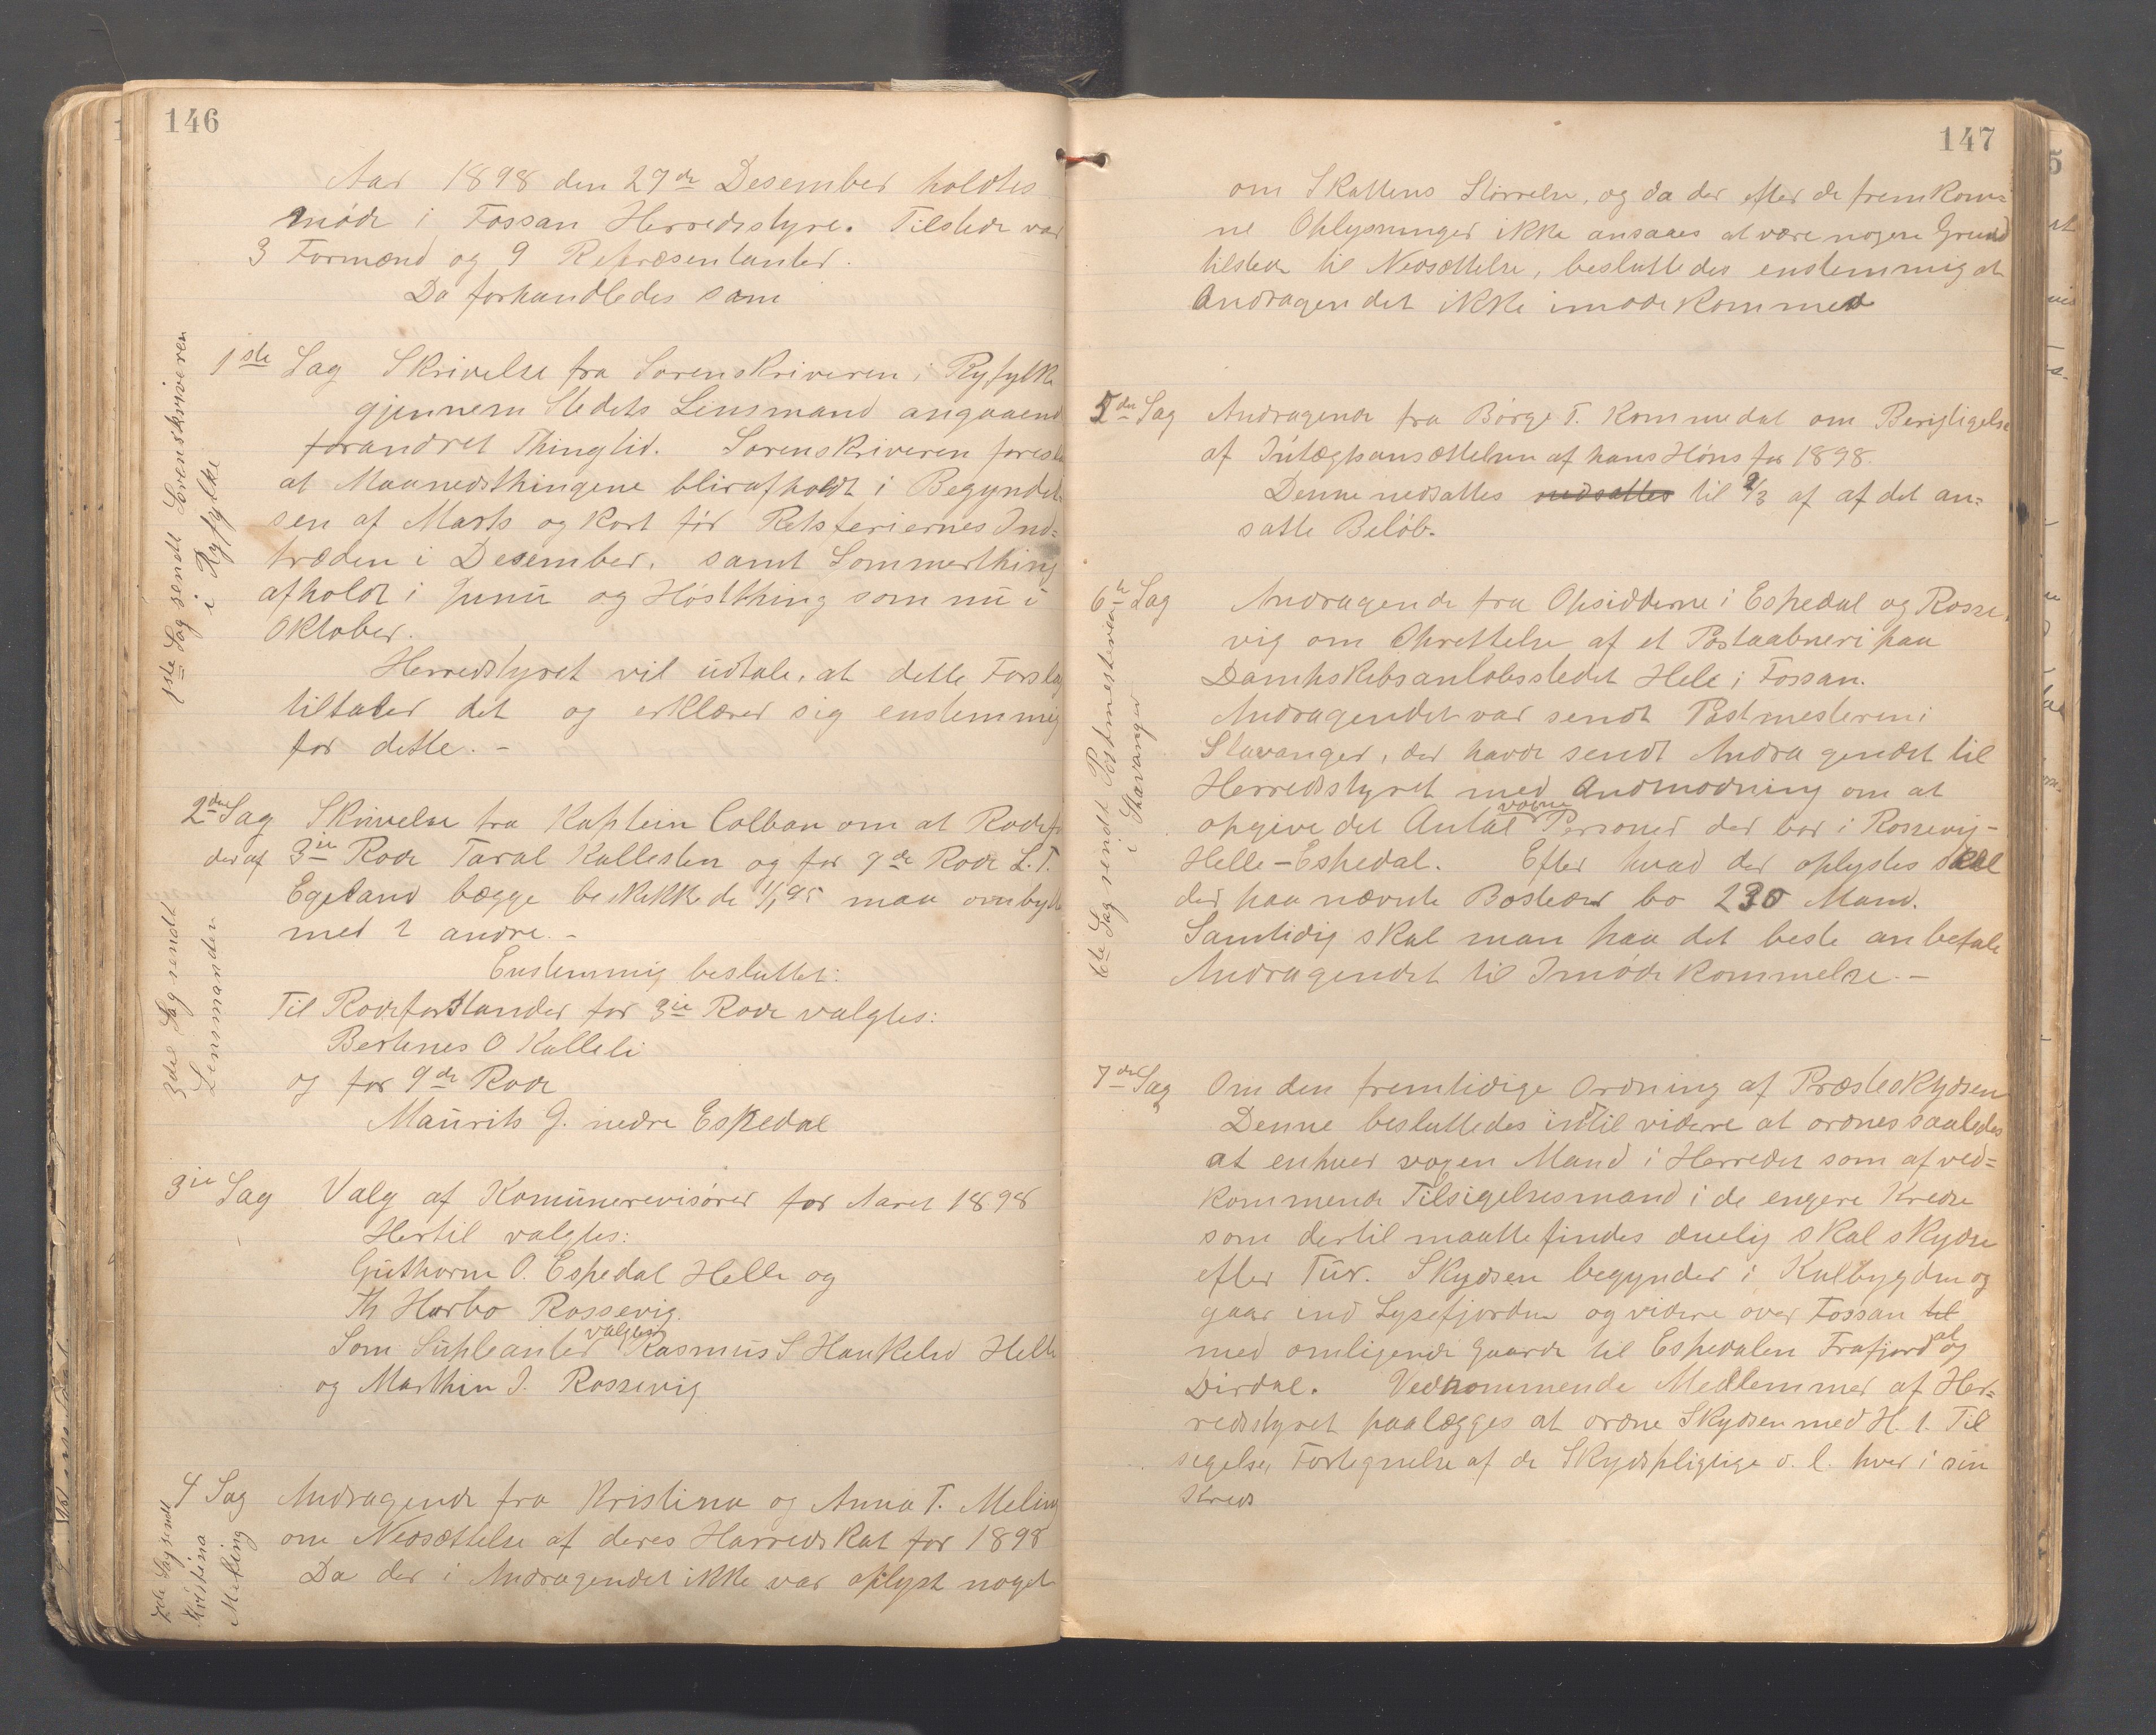 146
Aar 1898 den 27de Desember holdtes
møde i Fossan Herredsstyre. Tilstede var
3 Formænd og 9 Repræsentanter.
Da forhandledes som
1ste Sag sendt Sorenskriveren
i Ryfylke
1ste Sag Skrivelse fra Sorenskriveren i Ryfylke
gjennem Stedets Lensmand angaaend
forandret Thingtid. Sorenskriveren foresla
at Maanedsthingene blir afholdt i Begyndel
sen af Marts og kort før Retsferiernes Ind=
træden i Desember, samt Sommerthing
afholdt i Juni og Høstthing som nu i
Oktober.
Herredstyret vil udtale, at dette Forslag
tiltaler det og erklærer sig enstemmig
for dette. -
2den Sag Skrivelse fra Kaptein Colban om at Rodefo
der af 3ie Rode Taral Kallesten og for 9de Rode L. T.
Egeland begge beskikkede 1/1 95 maa ombytte
med 2 andre. -
Enstemmig besluttet:
3die Sag sendt
Lensmanden
Til Rodeforstander for 3ie Rode valgtes:
Bertines O Kalleli
og for 9de Rode
Maurits G. nedre Espedal
3ie Sag Valg af Komunerevisører for Aaret 1898
Hertil valgtes:
Guthorm O. Espedal Helle og
Th Harbo Rossevig.
Som Supleanter valgtes Rasmus S Haukelid Helle
og Marthin J. Rossevig
7de Sag sendt
Kristina
Meling
4 Sag Andragende fra Kristina og Anna T. Meling
om Nedsættelse af deres Herredskat for 1898
Da der i Andragendet ikke var oplyst noget
147
om Skattens Størrelse, og da der efter de fremkom=
ne Oplysninger ikke ansaaes at være nogen Grund
tilstede til Nedsættelse, besluttedes enstemmig at
Andragendet ikke imødekommed
5de Sag Andragende fra Børge T. Kommedal om Berigtigelse
af Intægtsansættelsen af hans Høns for 1898.
Denne nedsattes nedsattes til 2/3 af af det an=
satte Beløb.
6te Sag sendt Postmesteren
i Stavanger
6te Sag Andragende fra Opsidderne i Espedal og Rosse
vig om Oprettelse af et Postaabneri paa
Dampskibsanløbsstedet Hele i Fossan.
Andragendet var sendt Postmesteren i
Stavanger, der havde sendt Andragendet til
Herredsstyret med Andmodning om at
opgive det Antal voxne Personer der bor i Rossevig-
Helle-Espedal. Efter hvad der oplystes skal
der paa nævnte Bosteder bo 230 Mand.
Samtidig skal man paa det beste anbefale
Andragendet til Imødekommelse. -
7de Sag Om den fremtidige Ordning af Præsteskydsen
Denne besluttedes indtil videre at ordnes saaledes
at enhver vogen Mand i Herredet som af ved=
kommende Tilsigelsesmand i de engere Kredse
som dertil maatte findes duelig skal skydse
efter Tur. Skydsen begynder i Kulbygden og
gaar ind Lysefjorden og videre over Fossan til
med omligende Gaarde til Espedalen Frafjord og
Dirdal. Vedkommende Medlemmer af Her=
redsstyret paalægges at ordne Skydsen med H. t. Til
sigelse, Fortegnelse af de Skydspligtige o. l. hver i sin
Kreds